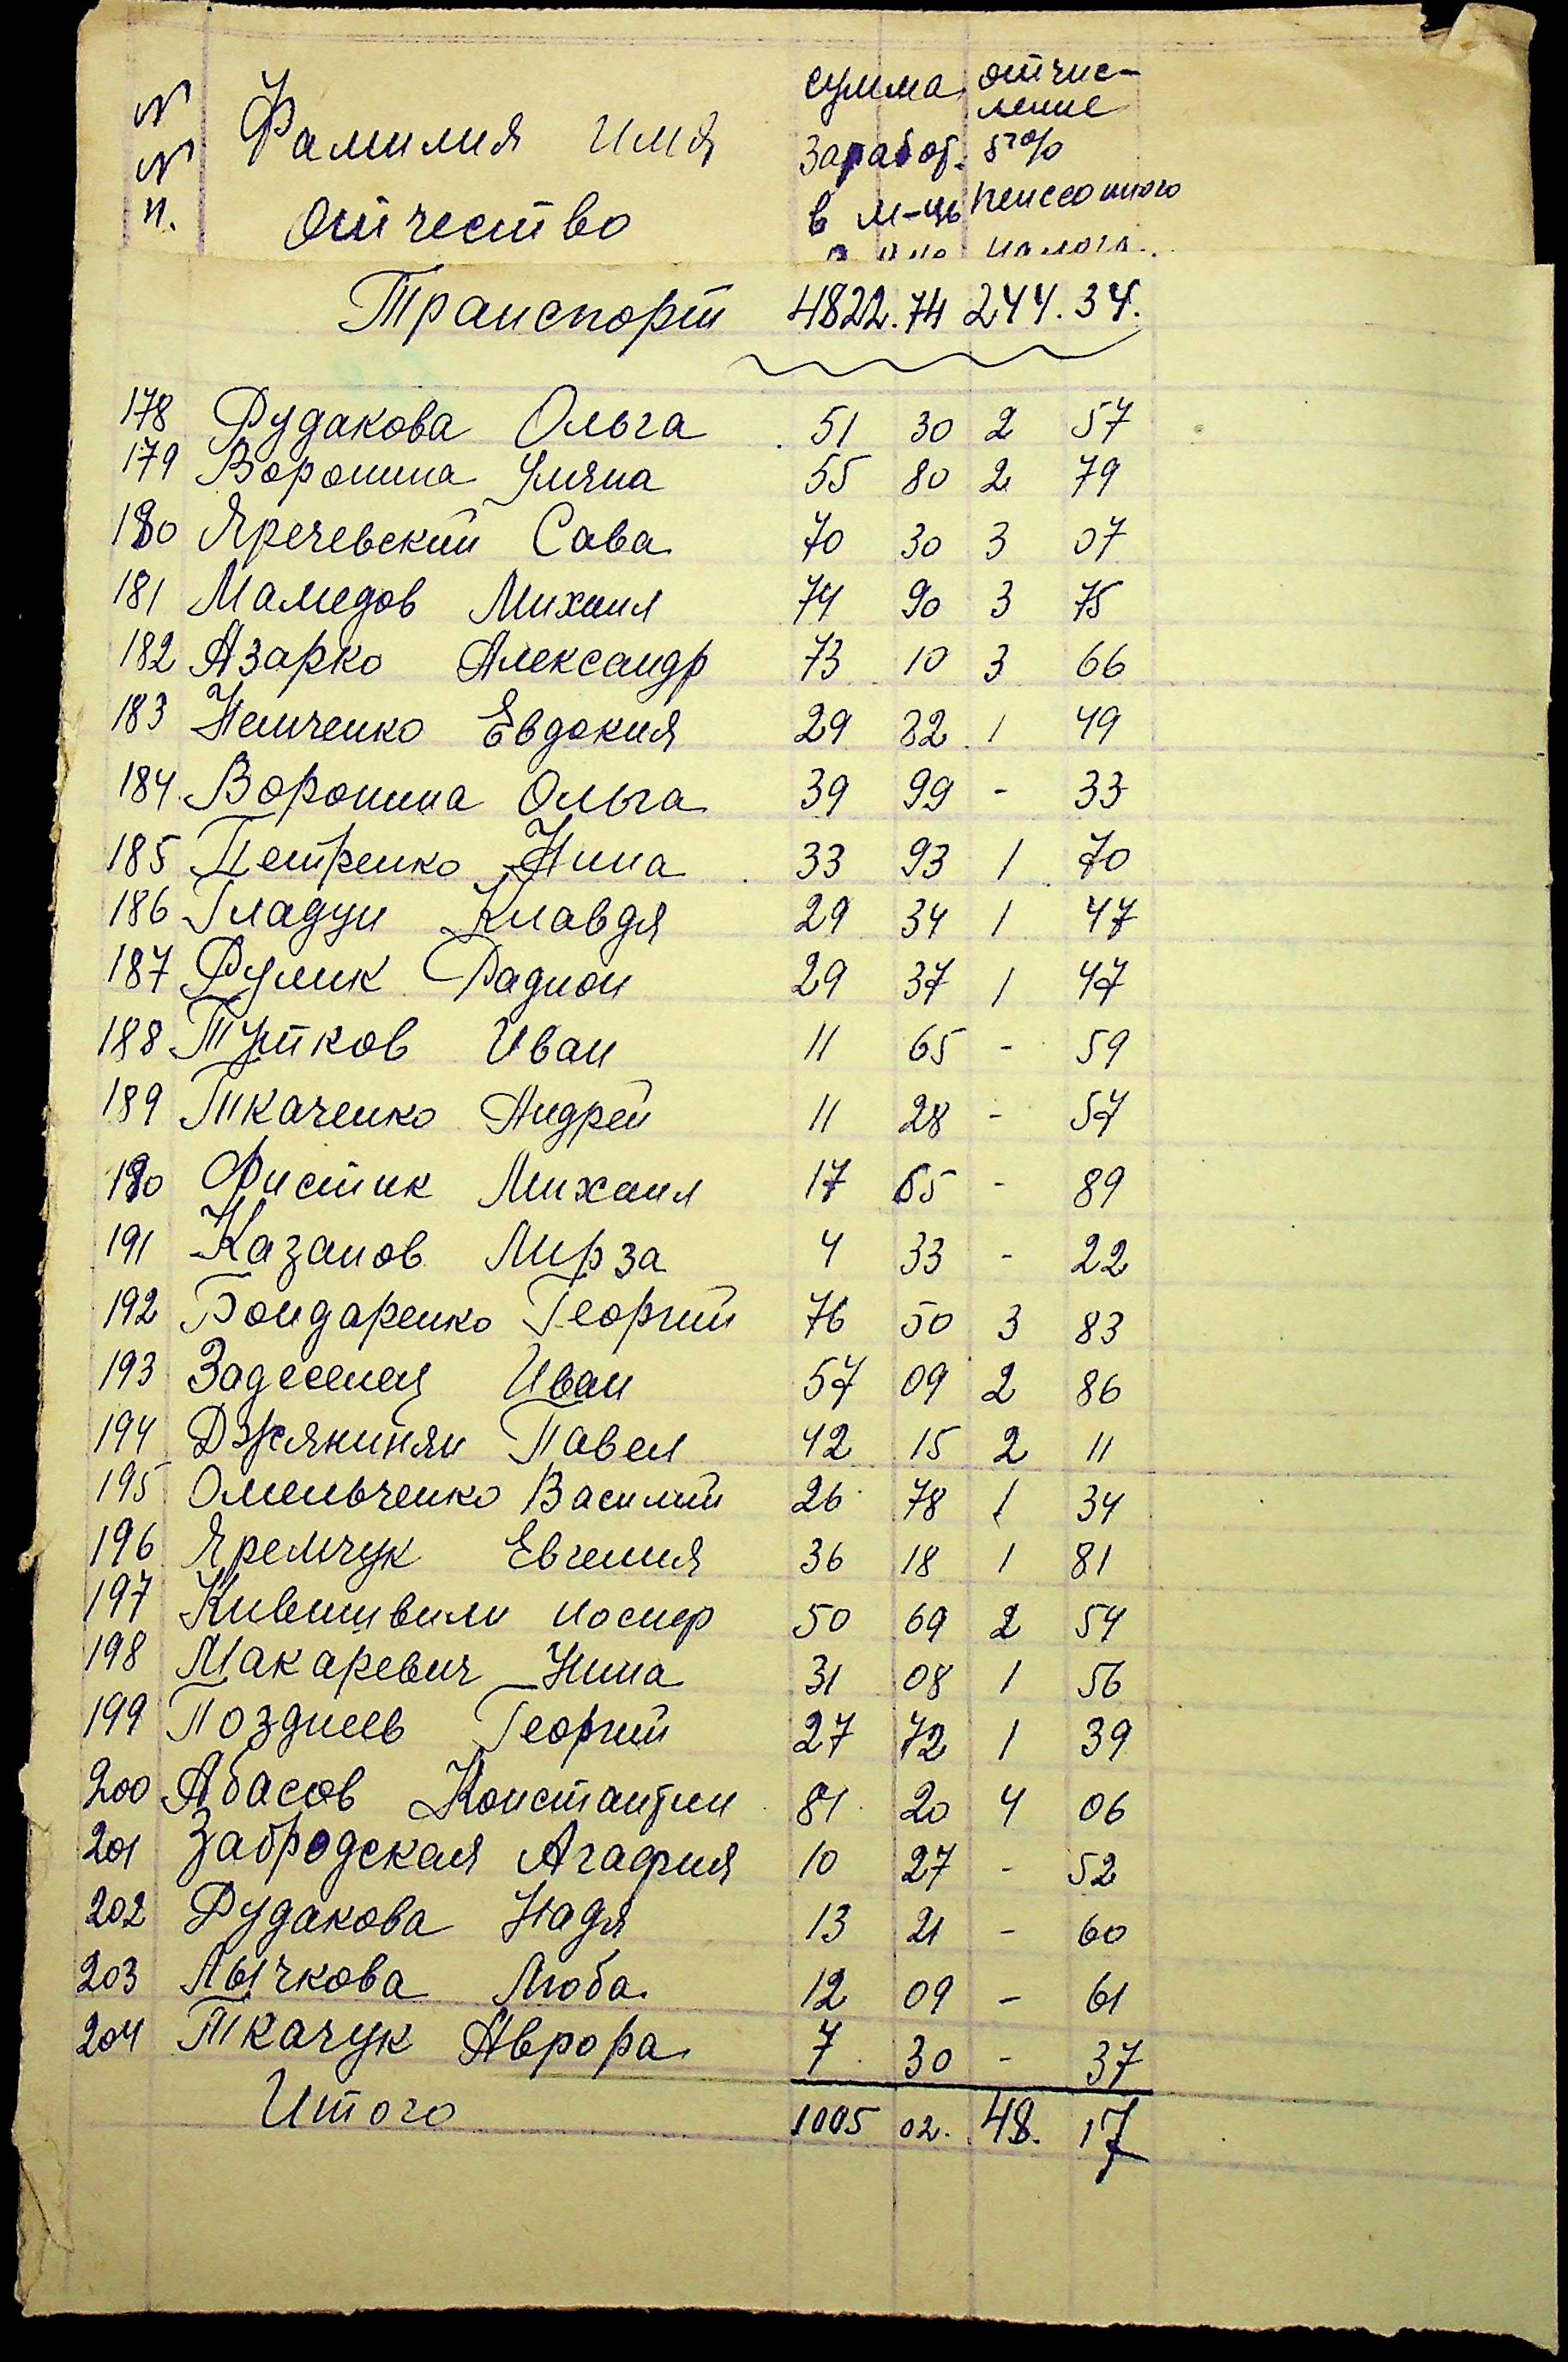 N
N
п.
Фамилия имя
отчество
сумма
заработ.
в м-ць
отчис-
ление
5%
пенссонного
налога.
Транспорт 4822.74 244.34.
178 Рудакова Ольга 51 30 2 57
179 Воронина Уляна 55 80 2 79
180 Яречевский Сава 70 30 3 07
181 Мамедов Михаил 74 90 3 75
182 Азарко Александр 73 10 3 66
183 Немченко Евдокия 29 82 1 49
184 Воронина Ольга 39 99 - 33
185 Петренко Нина 33 93 1 70
186 Гладун Клавдя 29 34 1 47
187 Рулик Радион 29 37 1 47
188 Тутков Иван 11 65 - 59
189 Ткаченко Андрей 11 28 - 57
190 Фистик Михаил 17 65 - 89
191 Казанов Мирза 4 33 - 22
192 Бондаренко Георгий 76 50 3 83
193 Иван 57 09 2 86
194 Павел 42 15 2 11
195 Омельченко Василий 26 78 1 34
196 Яремчук Евгения 36 18 1 81
197 Кившивили иосиф 50 69 2 54
198 Макаревич Нина 31 08 1 56
199 Позднеев Георгий 27 72 1 39
200 Абасов Константин 81 20 4 06
201 Забродская Агафия 10 27 - 52
202 Рудакова Надя 13 21 - 60
203 Лычкова Люба 12 09 - 61
204 Ткачук Аврора 7 30 - 37
Итого 1005 02. 48. 17